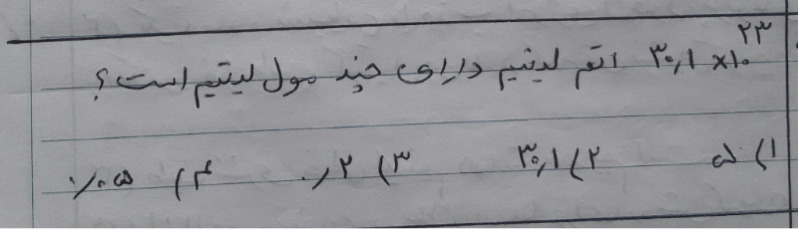 ۳۰٫۱ × ۱۰^۲۳ اتم لیتیم دارای چند مول لیتیم است؟
۱) ۵ ۲) ۳۰٫۱ ۳) ۲٫۰ ۴) ۰٫۰۵